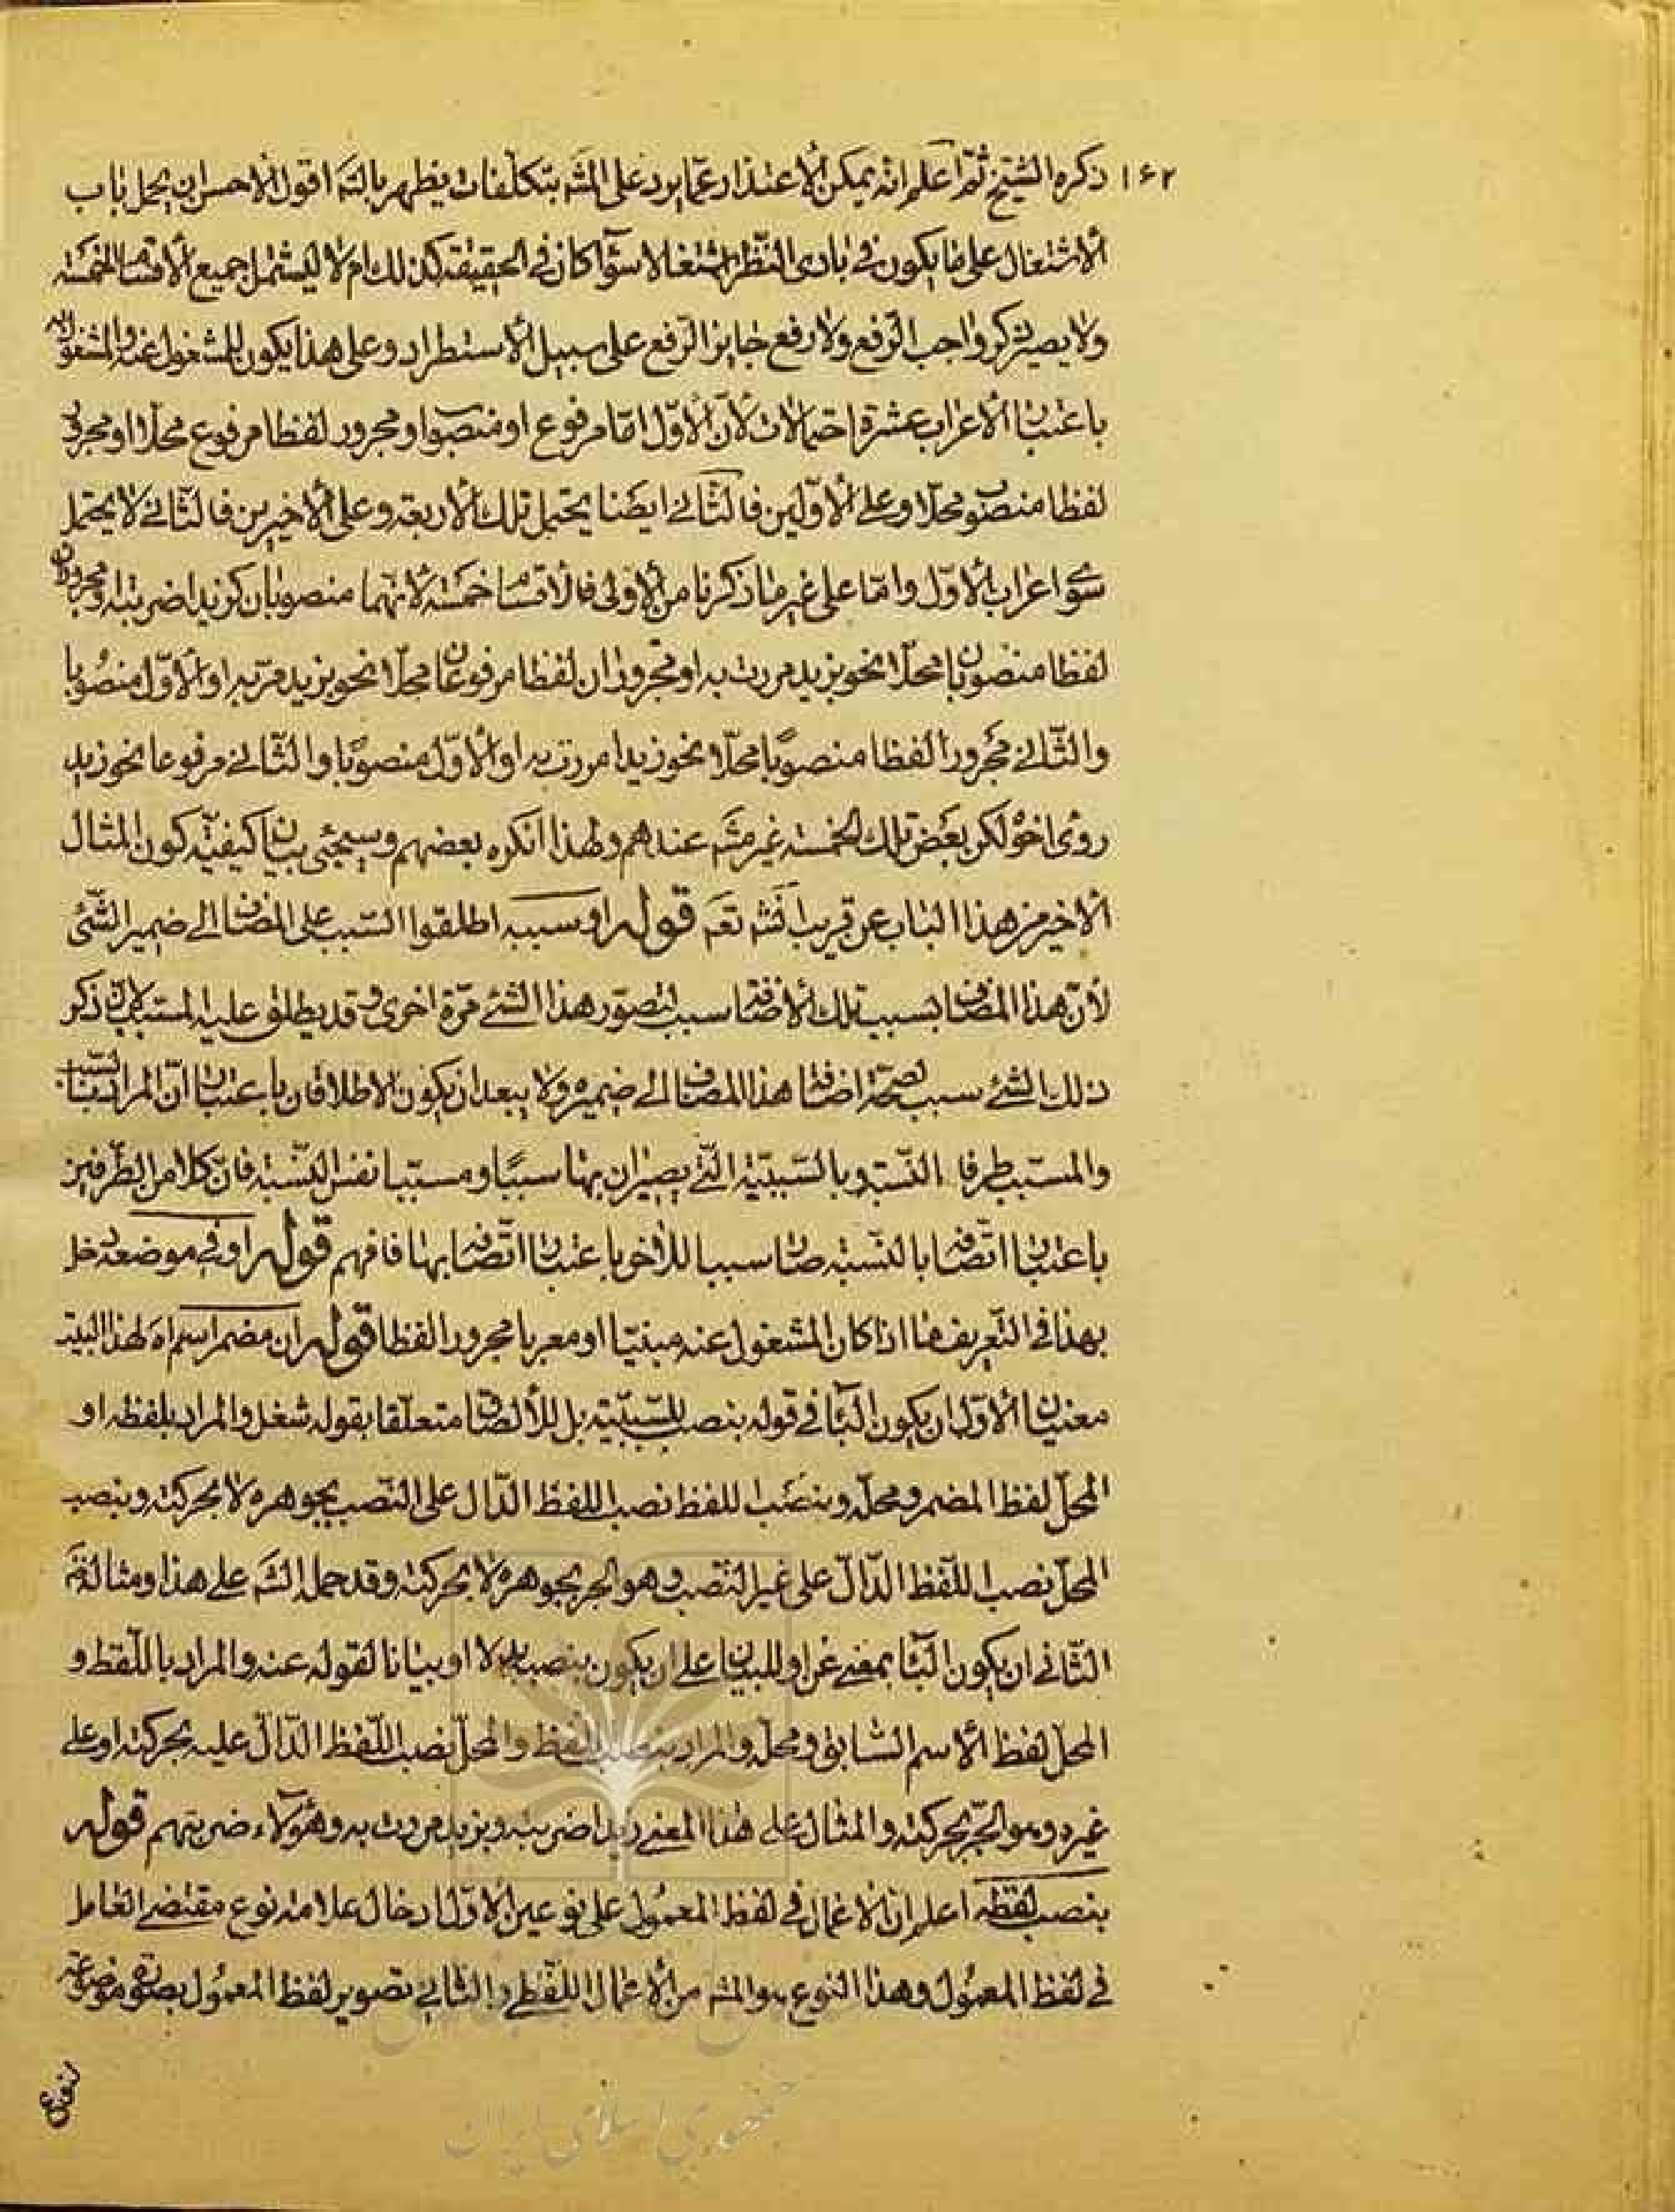 ١٦٢ ذكره الشيخ ثم اعلم انه يمكن الاعتذار عما يرد على المثه بتكلفات يظهر بالته اقول الاحسن ان يحمل باب
الاشتغال على ما يكون في بادى النظر اشتغالا سوآء كان في الحقيقة كذلك ام لا ليشتمل جميع الاقسام الخمسة
ولا يصير ذكر واجب الرفع ولا رفع جايز الرفع على سبيل الاستطراد وعلى هذا يكون للمشغول عنه والمشغول به
باعتبار الاعراب عشرة احتمالات لان الاول اما مرفوع او منصوب او مجرور لفظا مرفوع محلا او مجرور
لفظا منصوب محلا وعلى الاولين فالثاني ايضا يحتمل تلك الاربعة وعلى الاخيرين فالثاني لا يحتمل
سوى اعراب الاول واما على غير ما ذكرنا من الاولى فالاقسام خمسة لانهما منصوبان كزيدا ضربته او مجروران
لفظا منصوبان محلا نحو بزيد مررت به او مجروران لفظا مرفوعان محلا نحو بزيد مر به او الاول منصوبا
والثاني مجرورا لفظا منصوبا محلا نحو زيدا مررت به او الاول منصوبا والثاني مرفوعا نحو زيد
روى اخو لكن بعض تلك الخمسة غير مثه عندهم ولهذا انكره بعضهم وسيجئ بيان كيفية كون المثال
الاخير من هذا الباب عن قريب انشه تعه قوله او سببه اطلقوا السبب على المضاف الى ضمير الشئ
لان هذا المضاف بسبب تلك الاضافة سبب لتصور هذا الشئ مرة اخرى وقد يطلق عليه المسبب لان ذكر
ذلك الشئ سبب لصحة اضافة هذا المضاف الى ضميره ولا يبعد ان يكون الاطلاقان باعتبار ان المراد بالسبب
والمسبب طرفا النسبة وبالسببية التي يصيران بها سببا ومسببا نفس النسبة فان كلا من الطرفين
باعتبار اتصافه بالنسبة صار سببا للاخر باعتبار اتصافه بها فافهم قوله او في موضعه دخل
بهذا في التعريف ما اذا كان المشغول عنه مبنيا او معربا مجرورا لفظا قوله ان مضمر اسم اه لهذا البيت
معنيان الاول ان يكون الباء في قوله بنصب للسببية بل للالصاق متعلقا بقوله شغل والمراد بلفظه او
المحل لفظ المضمر ومحله وبنصب اللفظ نصب اللفظ الدال على النصب بجوهره لا بحركته وبنصب
المحل نصب اللفظ الدال على غير النصب وهو الجر بجوهره لا بحركته وقد حمل الشه على هذا ومثاله
الثاني ان يكون الباء بمعنى عن او للبيان على ان يكون بنصب بدلا او بيانا لقوله عنه والمراد باللفظ و
المحل لفظ الاسم السابق ومحله والمراد بنصب اللفظ والمحل نصب اللفظ الدال عليه بحركته او على
غيره وهو الجر بحركته والمثال على هذا المعنى زيدا ضربته وبزيد مررت به وهؤلاء ضربتهم قوله
بنصب لفظه اعلم ان الاعمال في لفظ المعمول على نوعين الاول ادخال علامة نوع مقتضى العامل
في لفظ المعمول وهذا النوع هو المثه من الاعمال اللفظي والثاني تصوير لفظ المعمول بصورة موضوعة
جمهوری اسلامی ایران